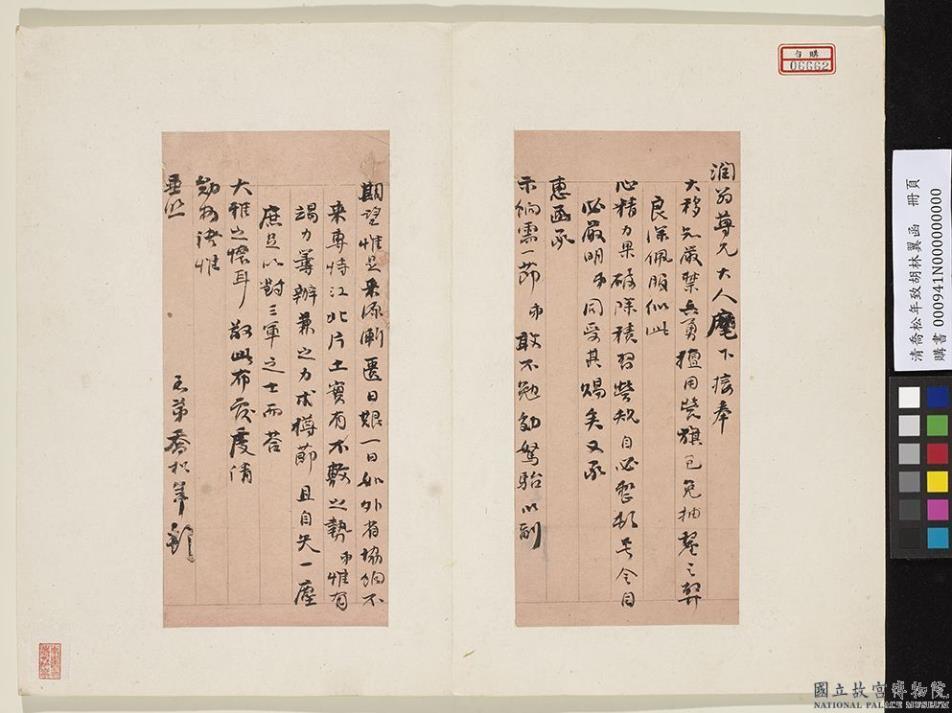 潤翁尊兄大人麾下接奉
大移知嚴禁兵勇擅用營旗以免抽釐之弊
良深佩服似此
心精力果破除積習營規自必整肅号令自
必嚴明弟同受其賜矣又承
惠函承
示餉需一節弟敢不勉劬駑駘以副
期望惟是來源漸匱日艱一日如外省協餉不
來專恃江北片土實有不敷之勢弟惟有
竭力籌辦兼之力求樽節且自矢一塵
庶足以對三軍之士而答
大雅之懷耳敬此布Reply虔請
勛安諸惟
垂照
喬松年頓
自購
06662
清喬松年致胡林翼函 冊頁
購書 000941N000000000
國立故宮博物院
NATIONAL PALACE MUSEUM